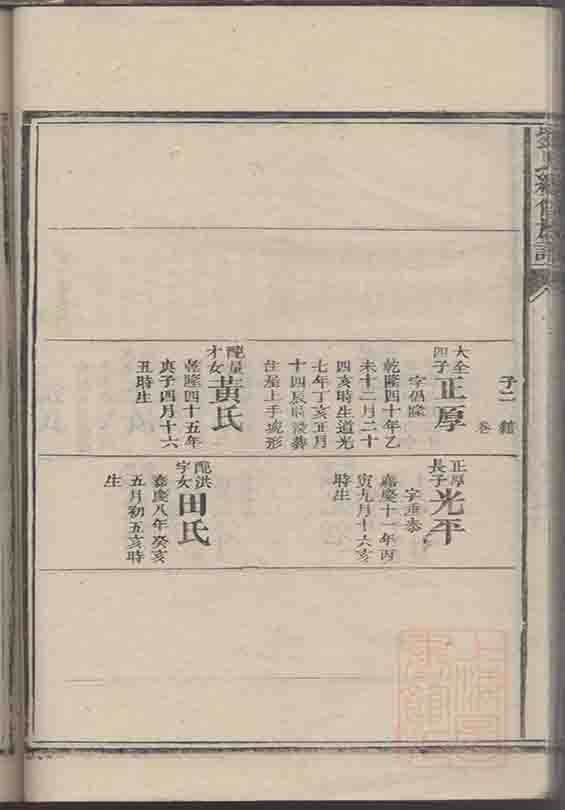 氏續修族譜
子二
大全
四子
正厚
字偈隆
乾隆四十年乙
未十二月二十
四亥時生道光
七年丁亥正月
十四辰時歿葬
住屋上手虎形
才女
黃氏
乾隆四十五年
庚子四月十六
丑時生
正厚
長子
光平
字垂泰
嘉慶十一年丙
寅九月十六亥
時生
配洪
字女
田氏
嘉慶八年癸亥
五月初五亥時
生